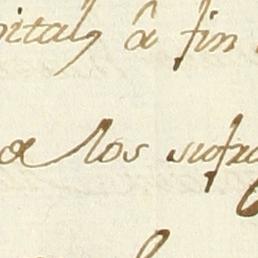 pital, â fin
a los sufra